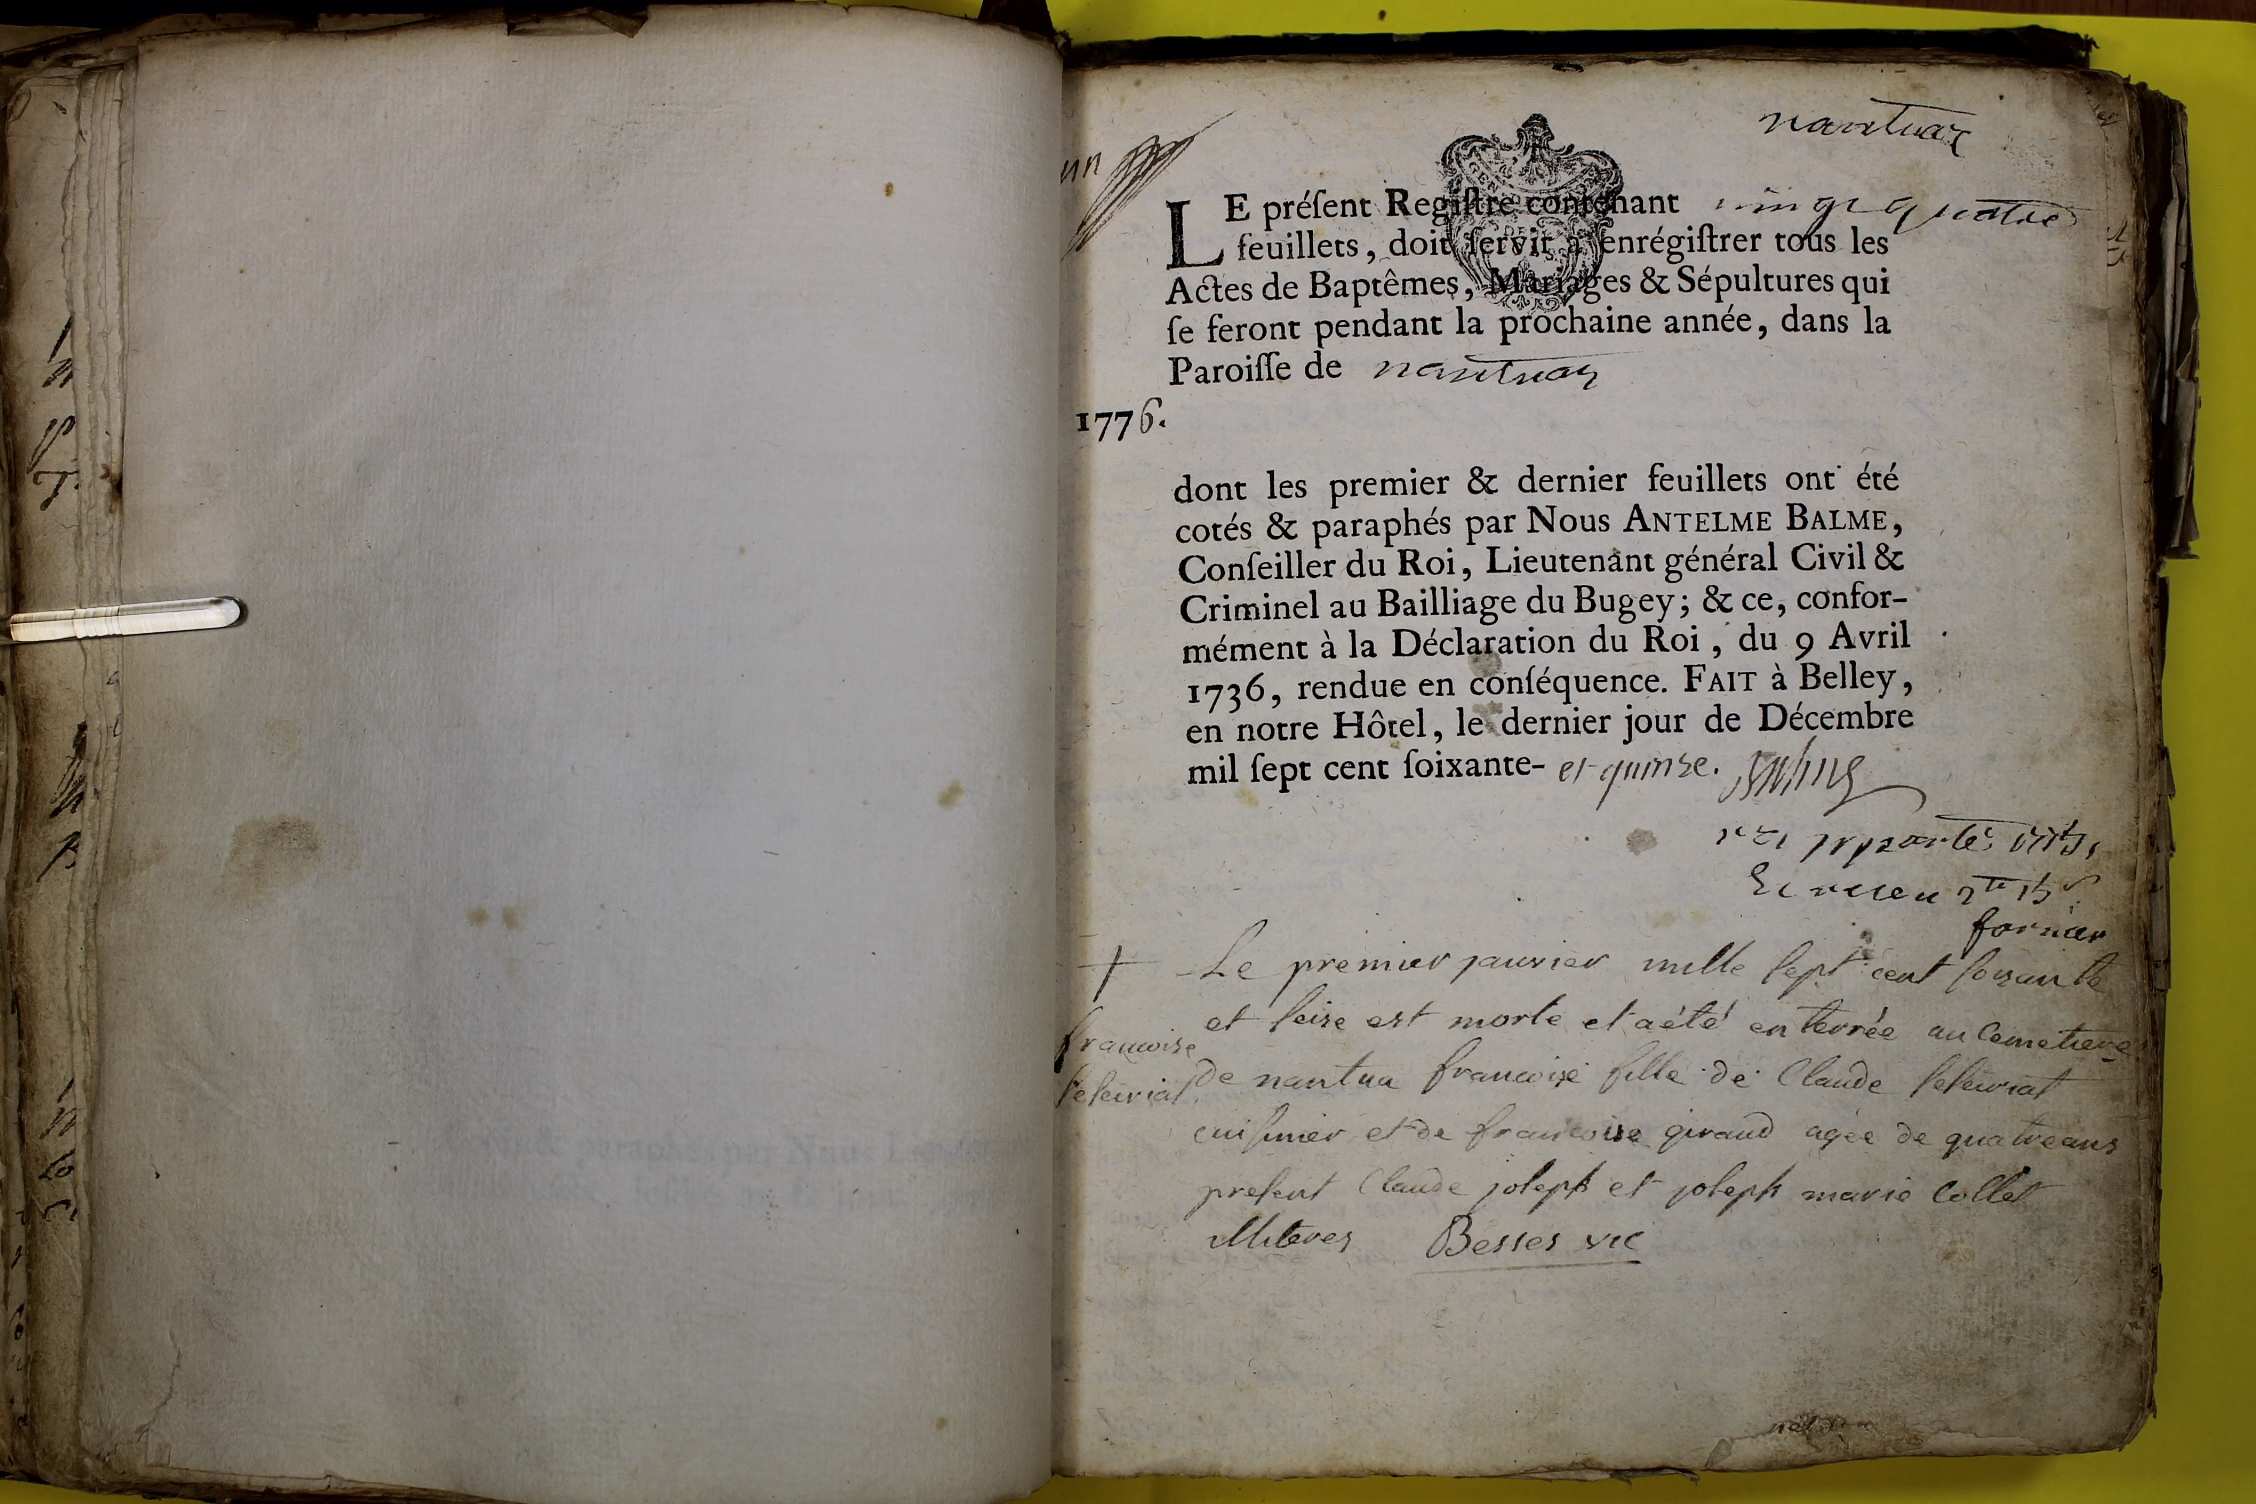 un
nantuaz
LE préſent Regiſtre contenant vingt quatre
feuillets, doit ſervir à enrégiſtrer tous les
Actes de Baptêmes, Mariages & Sépultures qui
ſe feront pendant la prochaine année, dans la
Paroiſſe de nantuaz
1776.
dont les premier & dernier feuillets ont été
cotés & paraphés par Nous ANTELME BALME,
Conſeiller du Roi, Lieutenant général Civil &
Criminel au Bailliage du Bugey; & ce, confor-
mément à la Déclaration du Roi, du 9 Avril
1736, rendue en conſéquence. FAIT à Belley,
en notre Hôtel, le dernier jour de Décembre
mil ſept cent ſoixante- et quinze. Balme
Le premier janvier mille sept cent soixante
et seize est morte et a été enterrée au Cemetiere
francoise
de nantua francoise fille de Claude
cuisinier et de francoise giraud agée de quatre ans
present Claude joseph et joseph marie Collet
illiteres Besses vic